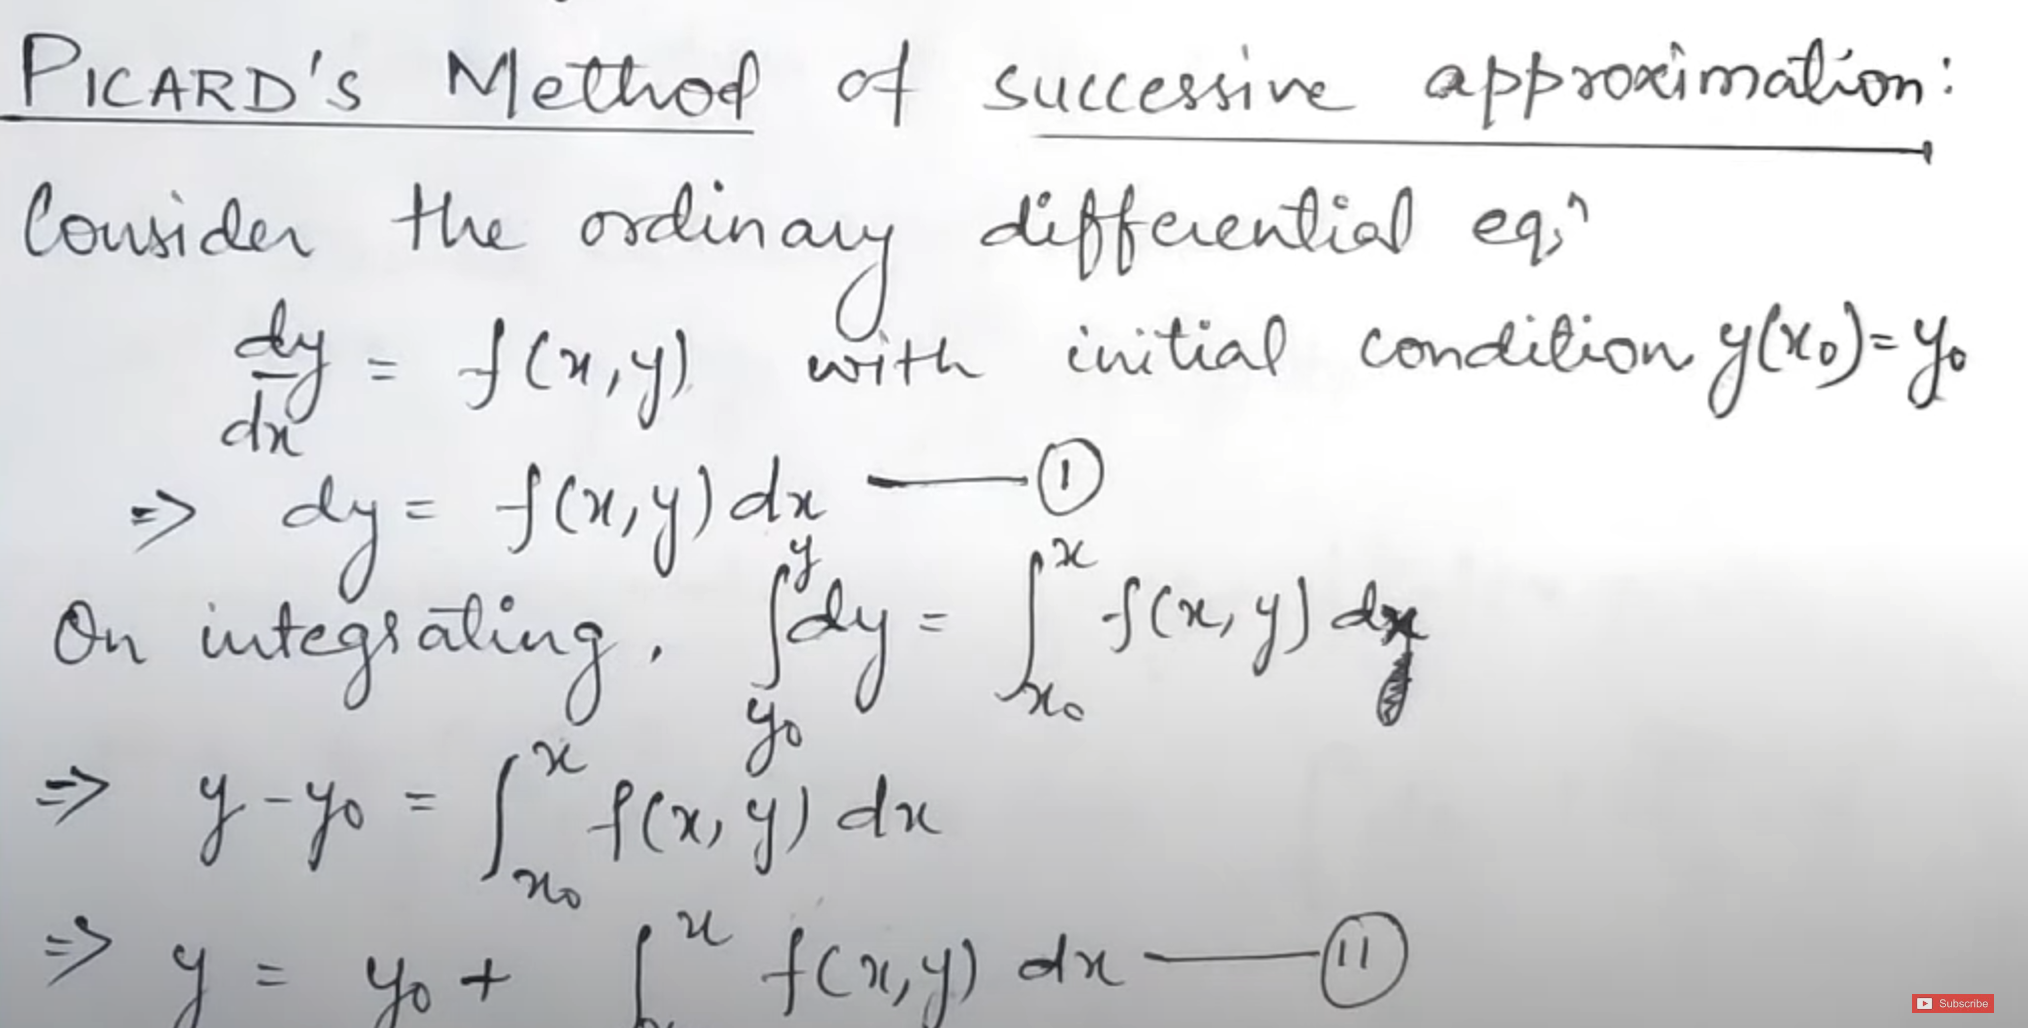 PICARD's Method of successive approximation:
Consider the ordinary differential eqⁿ
dy/dx = f(x,y) with initial condition y(x₀)=y₀
⇒ dy = f(x,y) dx —— ①
On integrating, ∫_{y₀}^{y} dy = ∫_{x₀}^{x} f(x,y) dx
⇒ y-y₀ = ∫_{x₀}^{x} f(x,y) dx
⇒ y = y₀ + ∫^{x} f(x,y) dx —— (11)
Subscribe